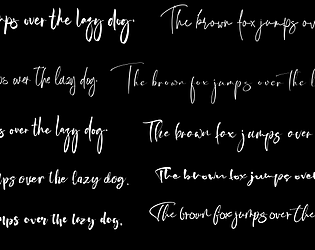 mps over the lazy dog. The brown fox jumps ove
ps over the lazy dog. The brown fox jumps over the l
s over the lazy dog. The brown fox jumps over
mps over the lazy dog. The brown fox jumps over
umps over the lazy dog. The brown fox jumps over the